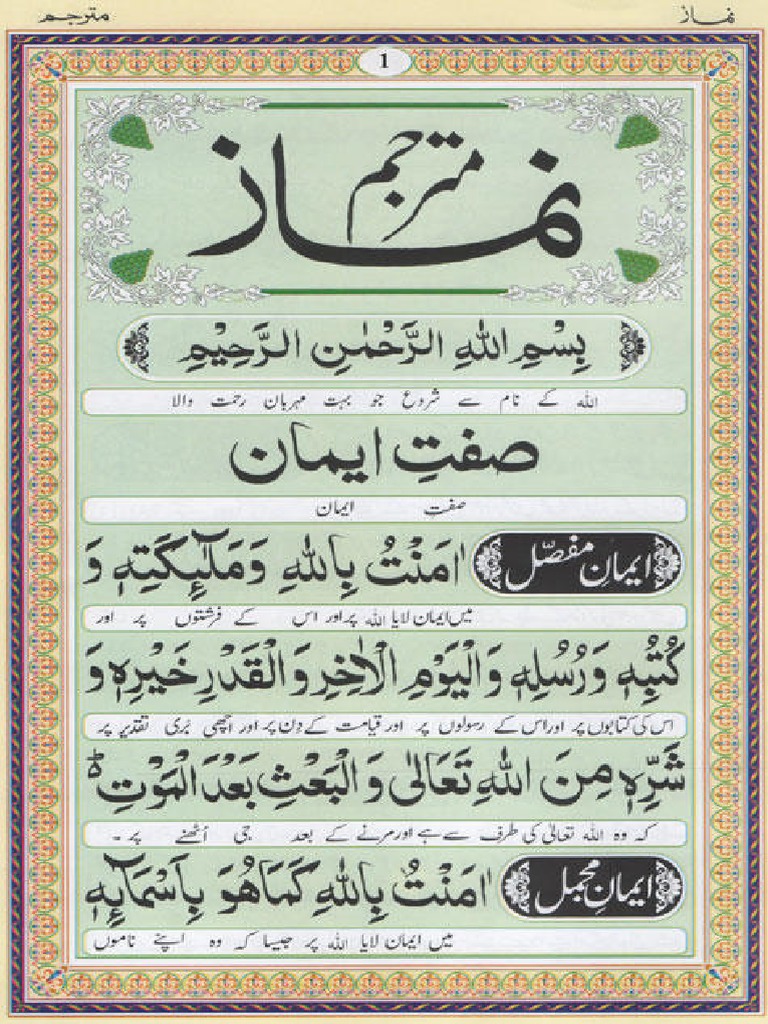 نماز مترجم
1
نماز مترجم
بِسْمِ اللهِ الرَّحْمٰنِ الرَّحِيْمِ
اللہ کے نام سے شروع جو بہت مہربان رحمت والا
صفتِ ایمان
صفتِ ایمان
ایمانِ مفصّل اٰمَنْتُ بِاللهِ وَمَلٰٓئِكَتِهٖ وَ
میں ایمان لایا اللہ پر اور اس کے فرشتوں پر اور
كُتُبِهٖ وَرُسُلِهٖ وَالْيَوْمِ الْاٰخِرِ وَالْقَدْرِ خَيْرِهٖ وَ
اس کی کتابوں پر اور اس کے رسولوں پر اور قیامت کے دِن پر اور اچھی بُری تقدیر پر
شَرِّهٖ مِنَ اللهِ تَعَالٰى وَالْبَعْثِ بَعْدَ الْمَوْتِ ؕ
کہ وہ اللہ تعالیٰ کی طرف سے ہے اور مرنے کے بعد جی اُٹھنے پر۔
ایمانِ مجمل اٰمَنْتُ بِاللهِ كَمَا هُوَ بِاَسْمَآئِهٖ
میں ایمان لایا اللہ پر جیسا کہ وہ اپنے ناموں